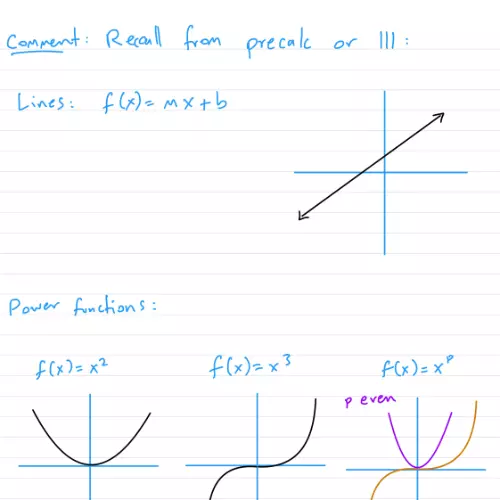 Comment: Recall from precalc or 111:
Lines: f(x) = mx + b
Power functions:
f(x) = x²
f(x) = x³
f(x) = xᵖ
p even